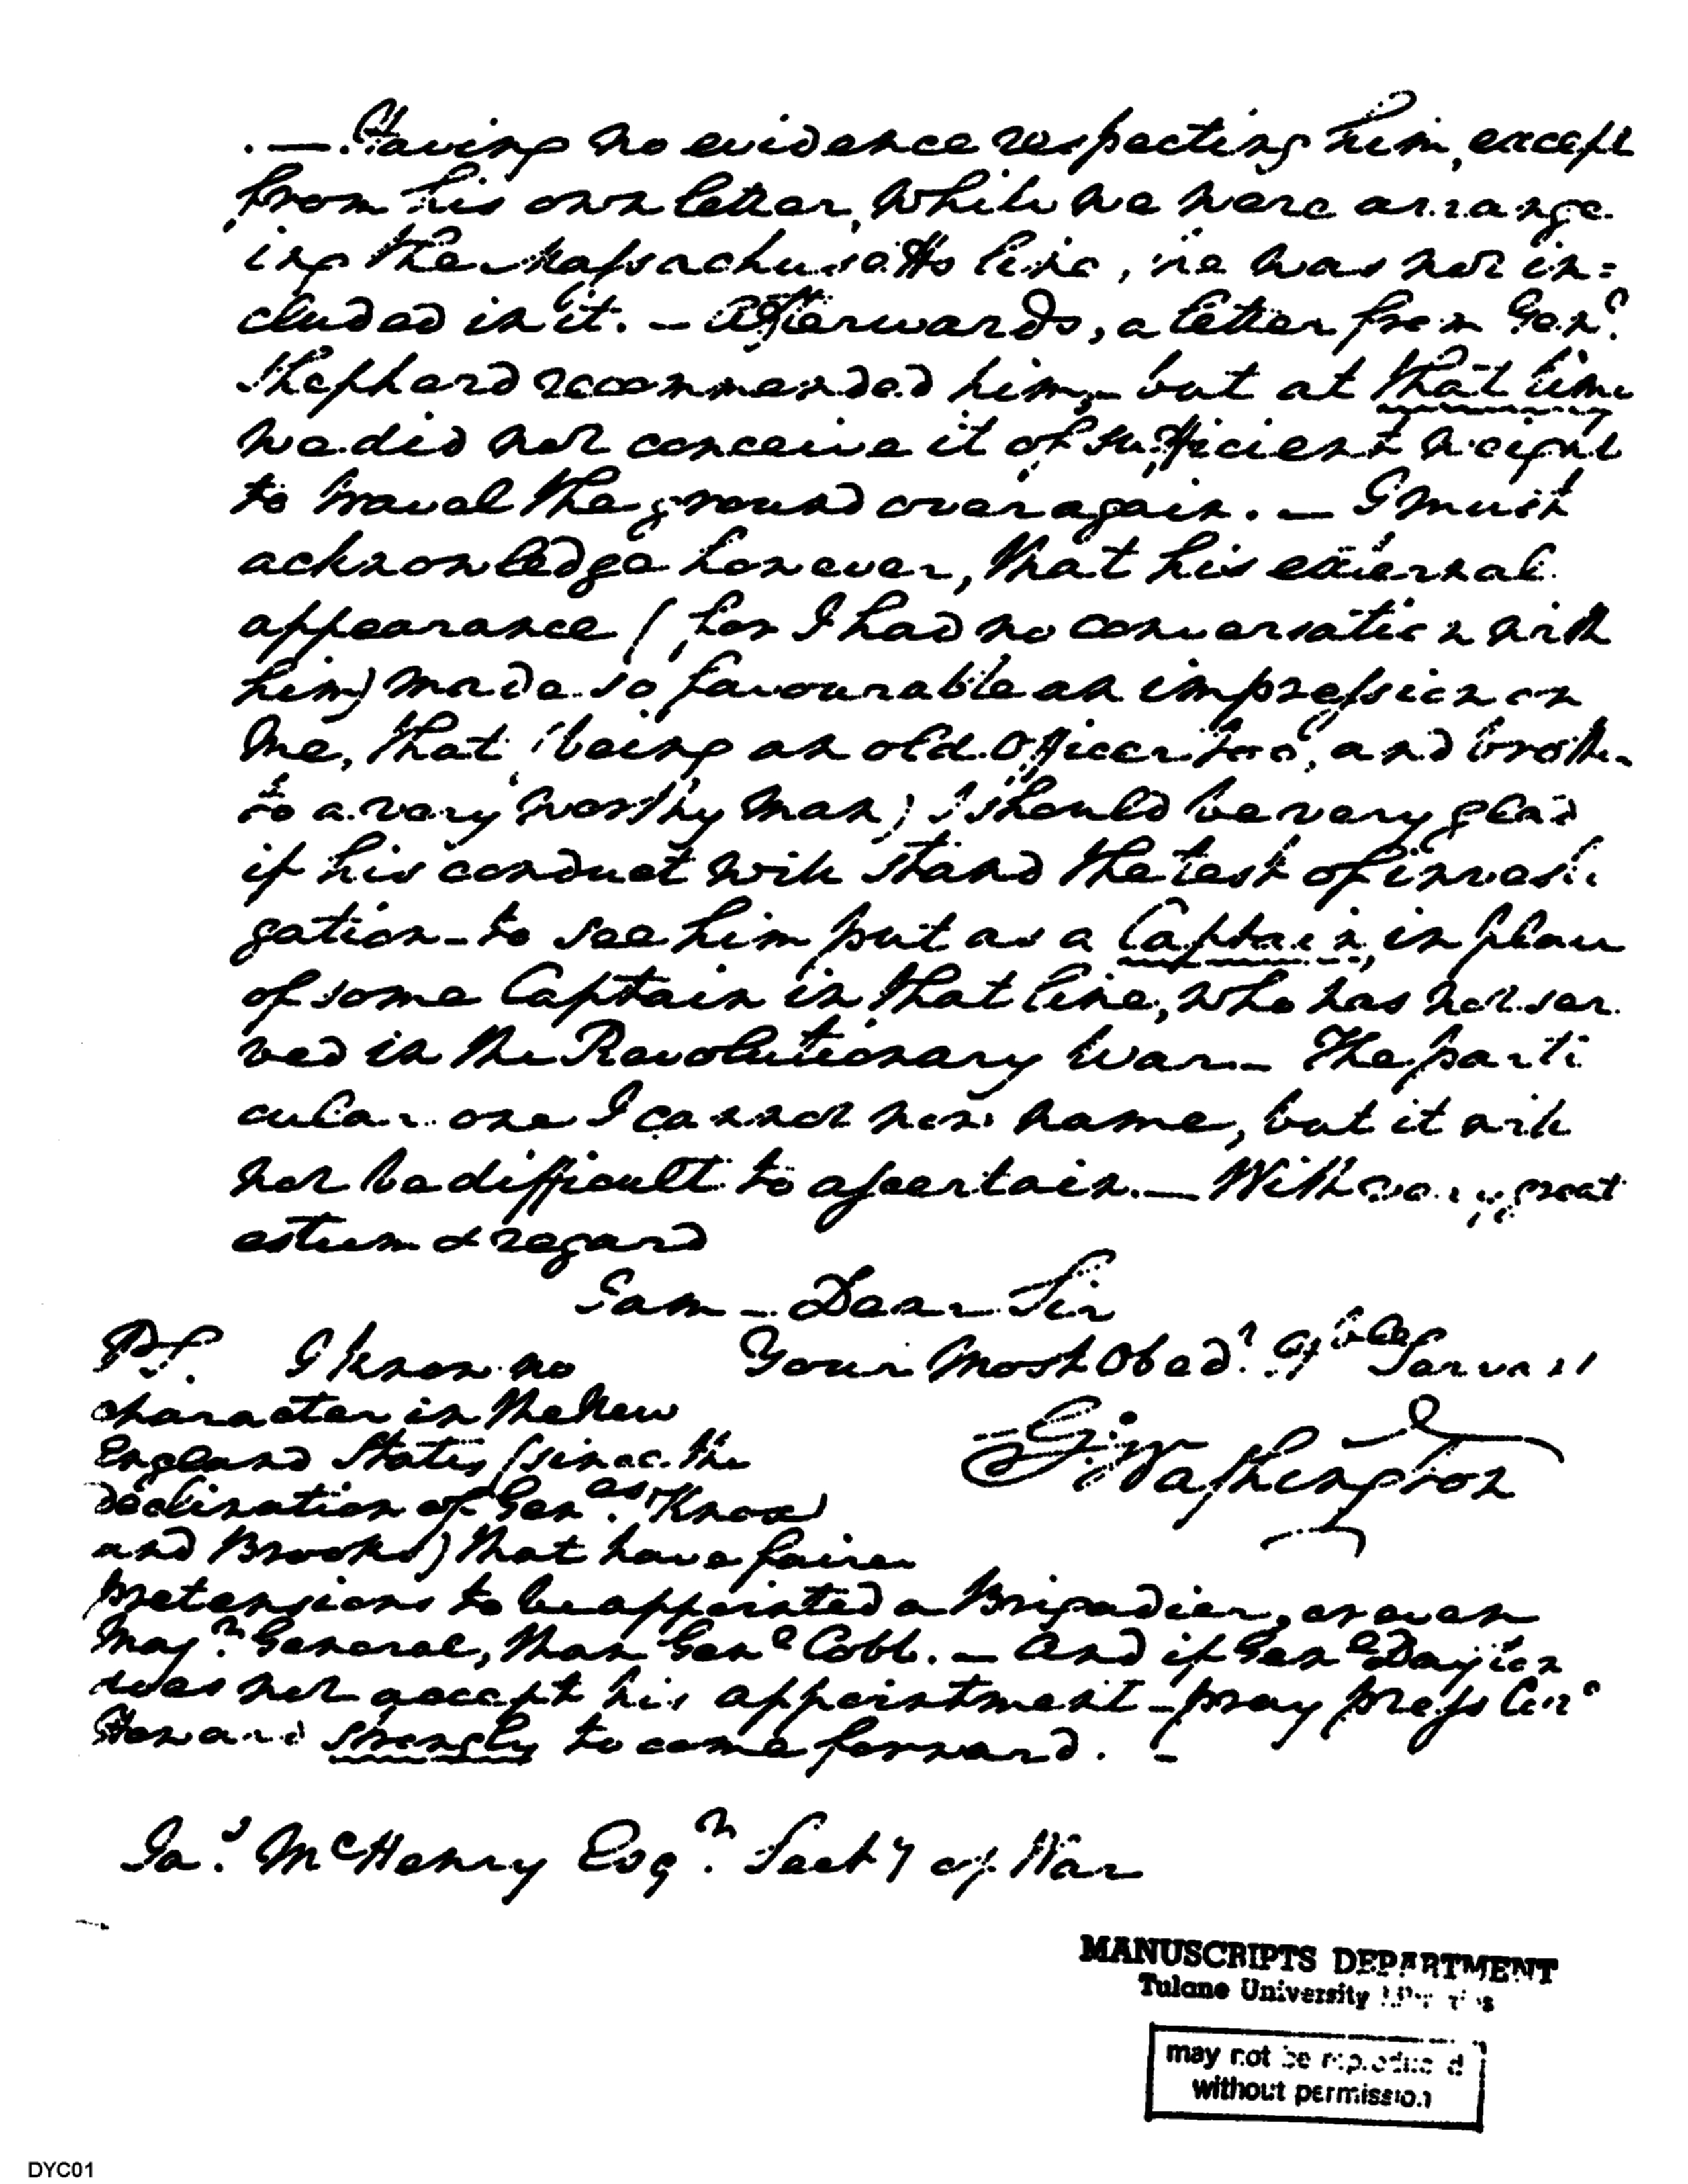 . — . Having no evidence respecting him, except
from his own letter, while we were arrange
ing the Massachusetts line, he was not in=
cluded in it. – Afterwards, a letter from Genl.
Shepherd recommended him,– but at that time
we did not conceive it of sufficient weight
to travel the ground over again. — I must
acknowledge however, that his external
appearance (for I had no conversation with
him) made so favourable an impression on
me, that (being an old Officer too, and brother
to a very worthy man) I should be very glad
if his conduct will stand the test of investi
gation – to see him put as a Captain, in place
of some Captain in that line, who has not ser
ved in the Revolutionary War. – The parti
cular one I cannot now name, but it will
not be difficult to ascertain. — With very great
esteem & regard
I am – Dear Sir
Your Most Obedt. Hble Servant
G: Washington
PS. I know no
character in the New
England States (since the
declination of Genls. Knox
and Brooks) that have fairer
pretensions to be appointed a Brigadier, or even
Majr. General, than Genl Cobb. – And if Genl Dayton
does not accept his appointment – pray press Colo
Howard strongly to come forward. –
Jas. McHenry Esqr. Secty of War
MANUSCRIPTS DEPARTMENT
Tulane University Libraries
may not be reproduced
without permission
DYC01